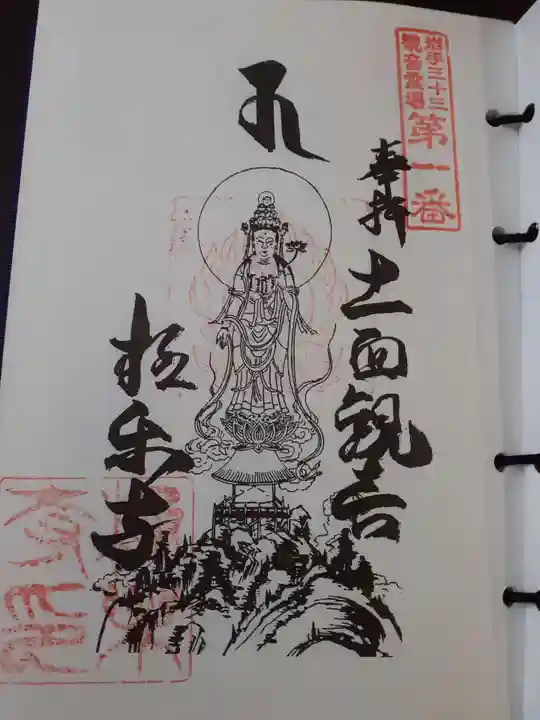 岩手三十三
観音霊場
第一番
奉拝
十一面観音
極楽寺